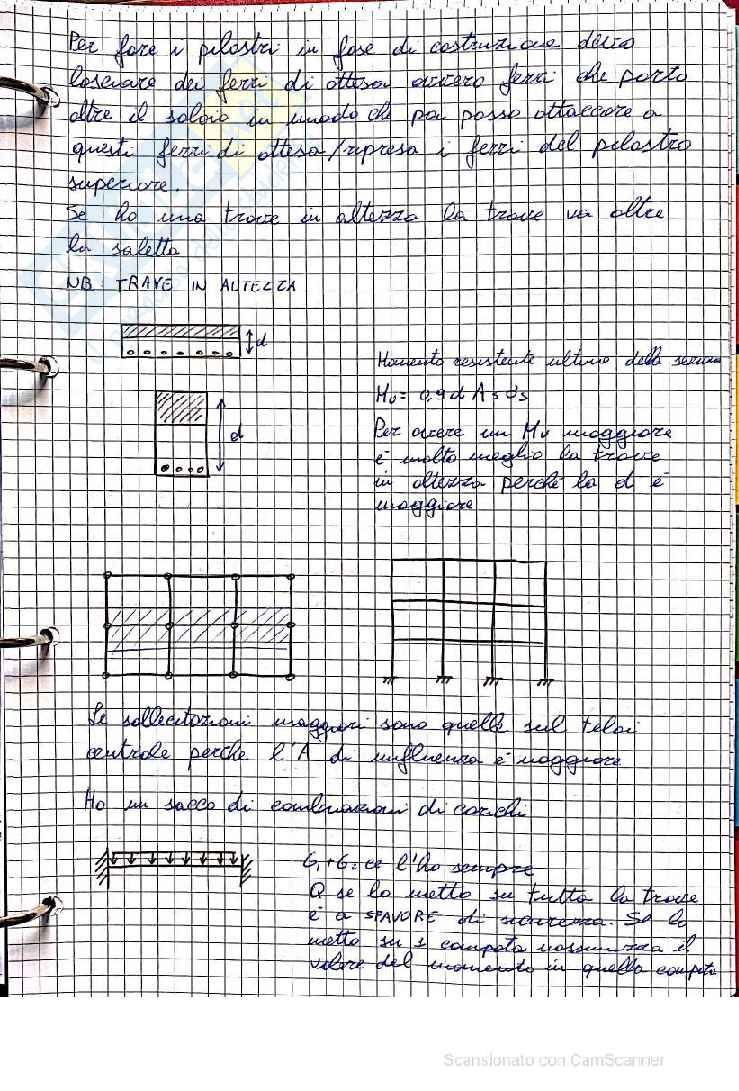 Per fare i pilastri in fase di costruzione devo
lasciare dei ferri di attesa ovvero ferri che porto
oltre il solaio in modo che poi posso attaccare a
questi ferri di attesa/ripresa i ferri del pilastro
superiore.
Se ho una trave in altezza la trave va oltre
la saletta
NB: TRAVE IN ALTEZZA
d
d
Momento resistente ultimo della sezione
Mu = 0,9 d As σs
Per avere un Mu maggiore
è molto meglio la trave
in altezza perché la d è
maggiore
Le sollecitazioni maggiori sono quelle sul telai
centrale perché l'A di influenza è maggiore
Ho un sacco di combinazioni di carichi
G1+G2 ce l'ho sempre
Q se lo metto su tutta la trave
è a SFAVORE di sicurezza. Se lo
metto su 1 campata massimizza il
valore del momento in quella campata
Scansionato con CamScanner